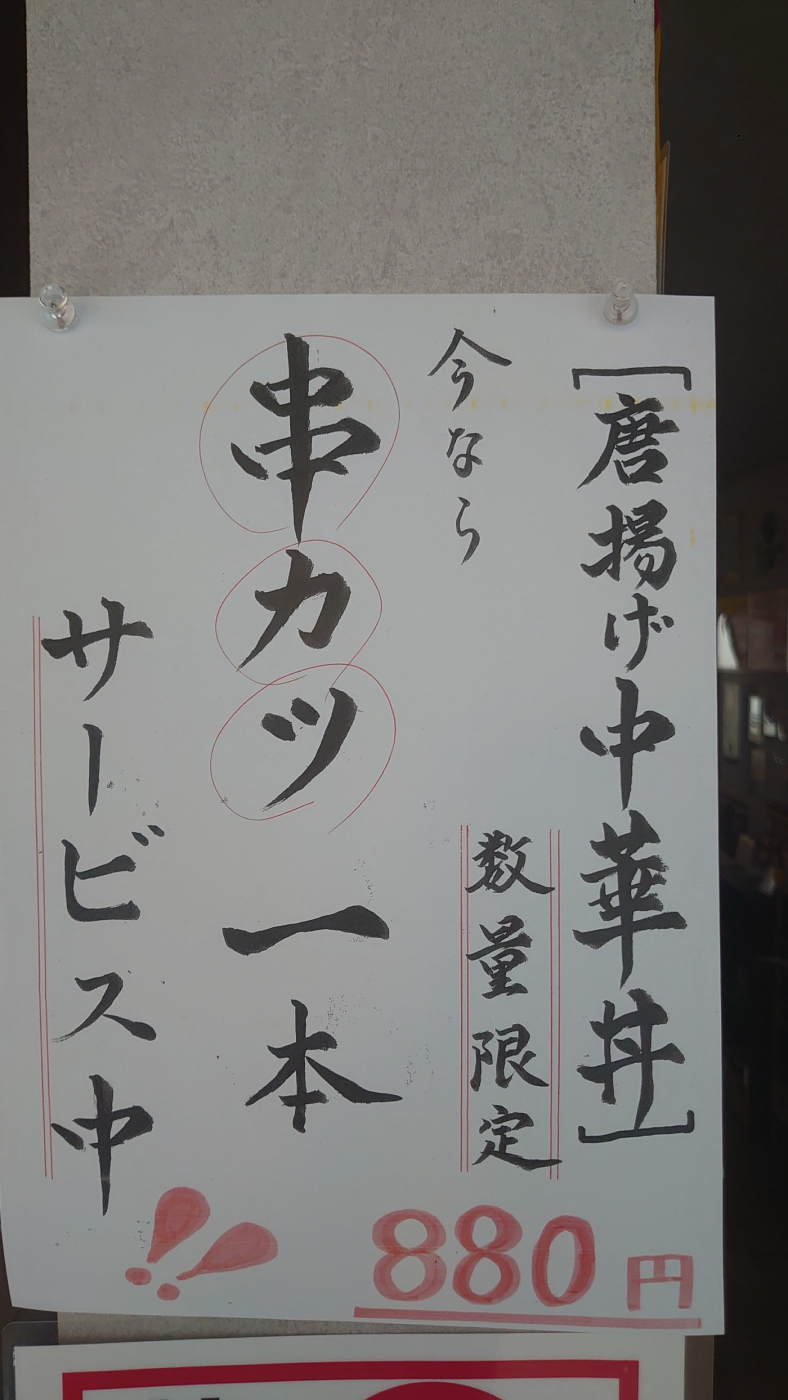 [唐揚げ中華丼]
数量限定
880円
今なら
串カツ一本
サービス中!!